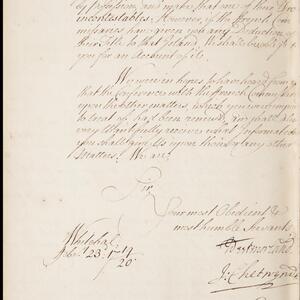 by possession, and make that one of their Pro
incontestables; However, if the French Com
missaries have given you any Deduction of
their Title to that Island, We shall be oblig'd to
you for an Account of it.
We were in hopes to have heard from you
that the Conferences with the French Commissaries
upon the other matters, which you were empower'd
to treat of had been renew'd, in part. We shall
very thankfully receive what Information
you shall give Us upon this or any other
Matters. We are
Sir
Your most Obedient &
most humble Servants
Whitehall
Febr. 23. 1719/20
J. Chetwynd